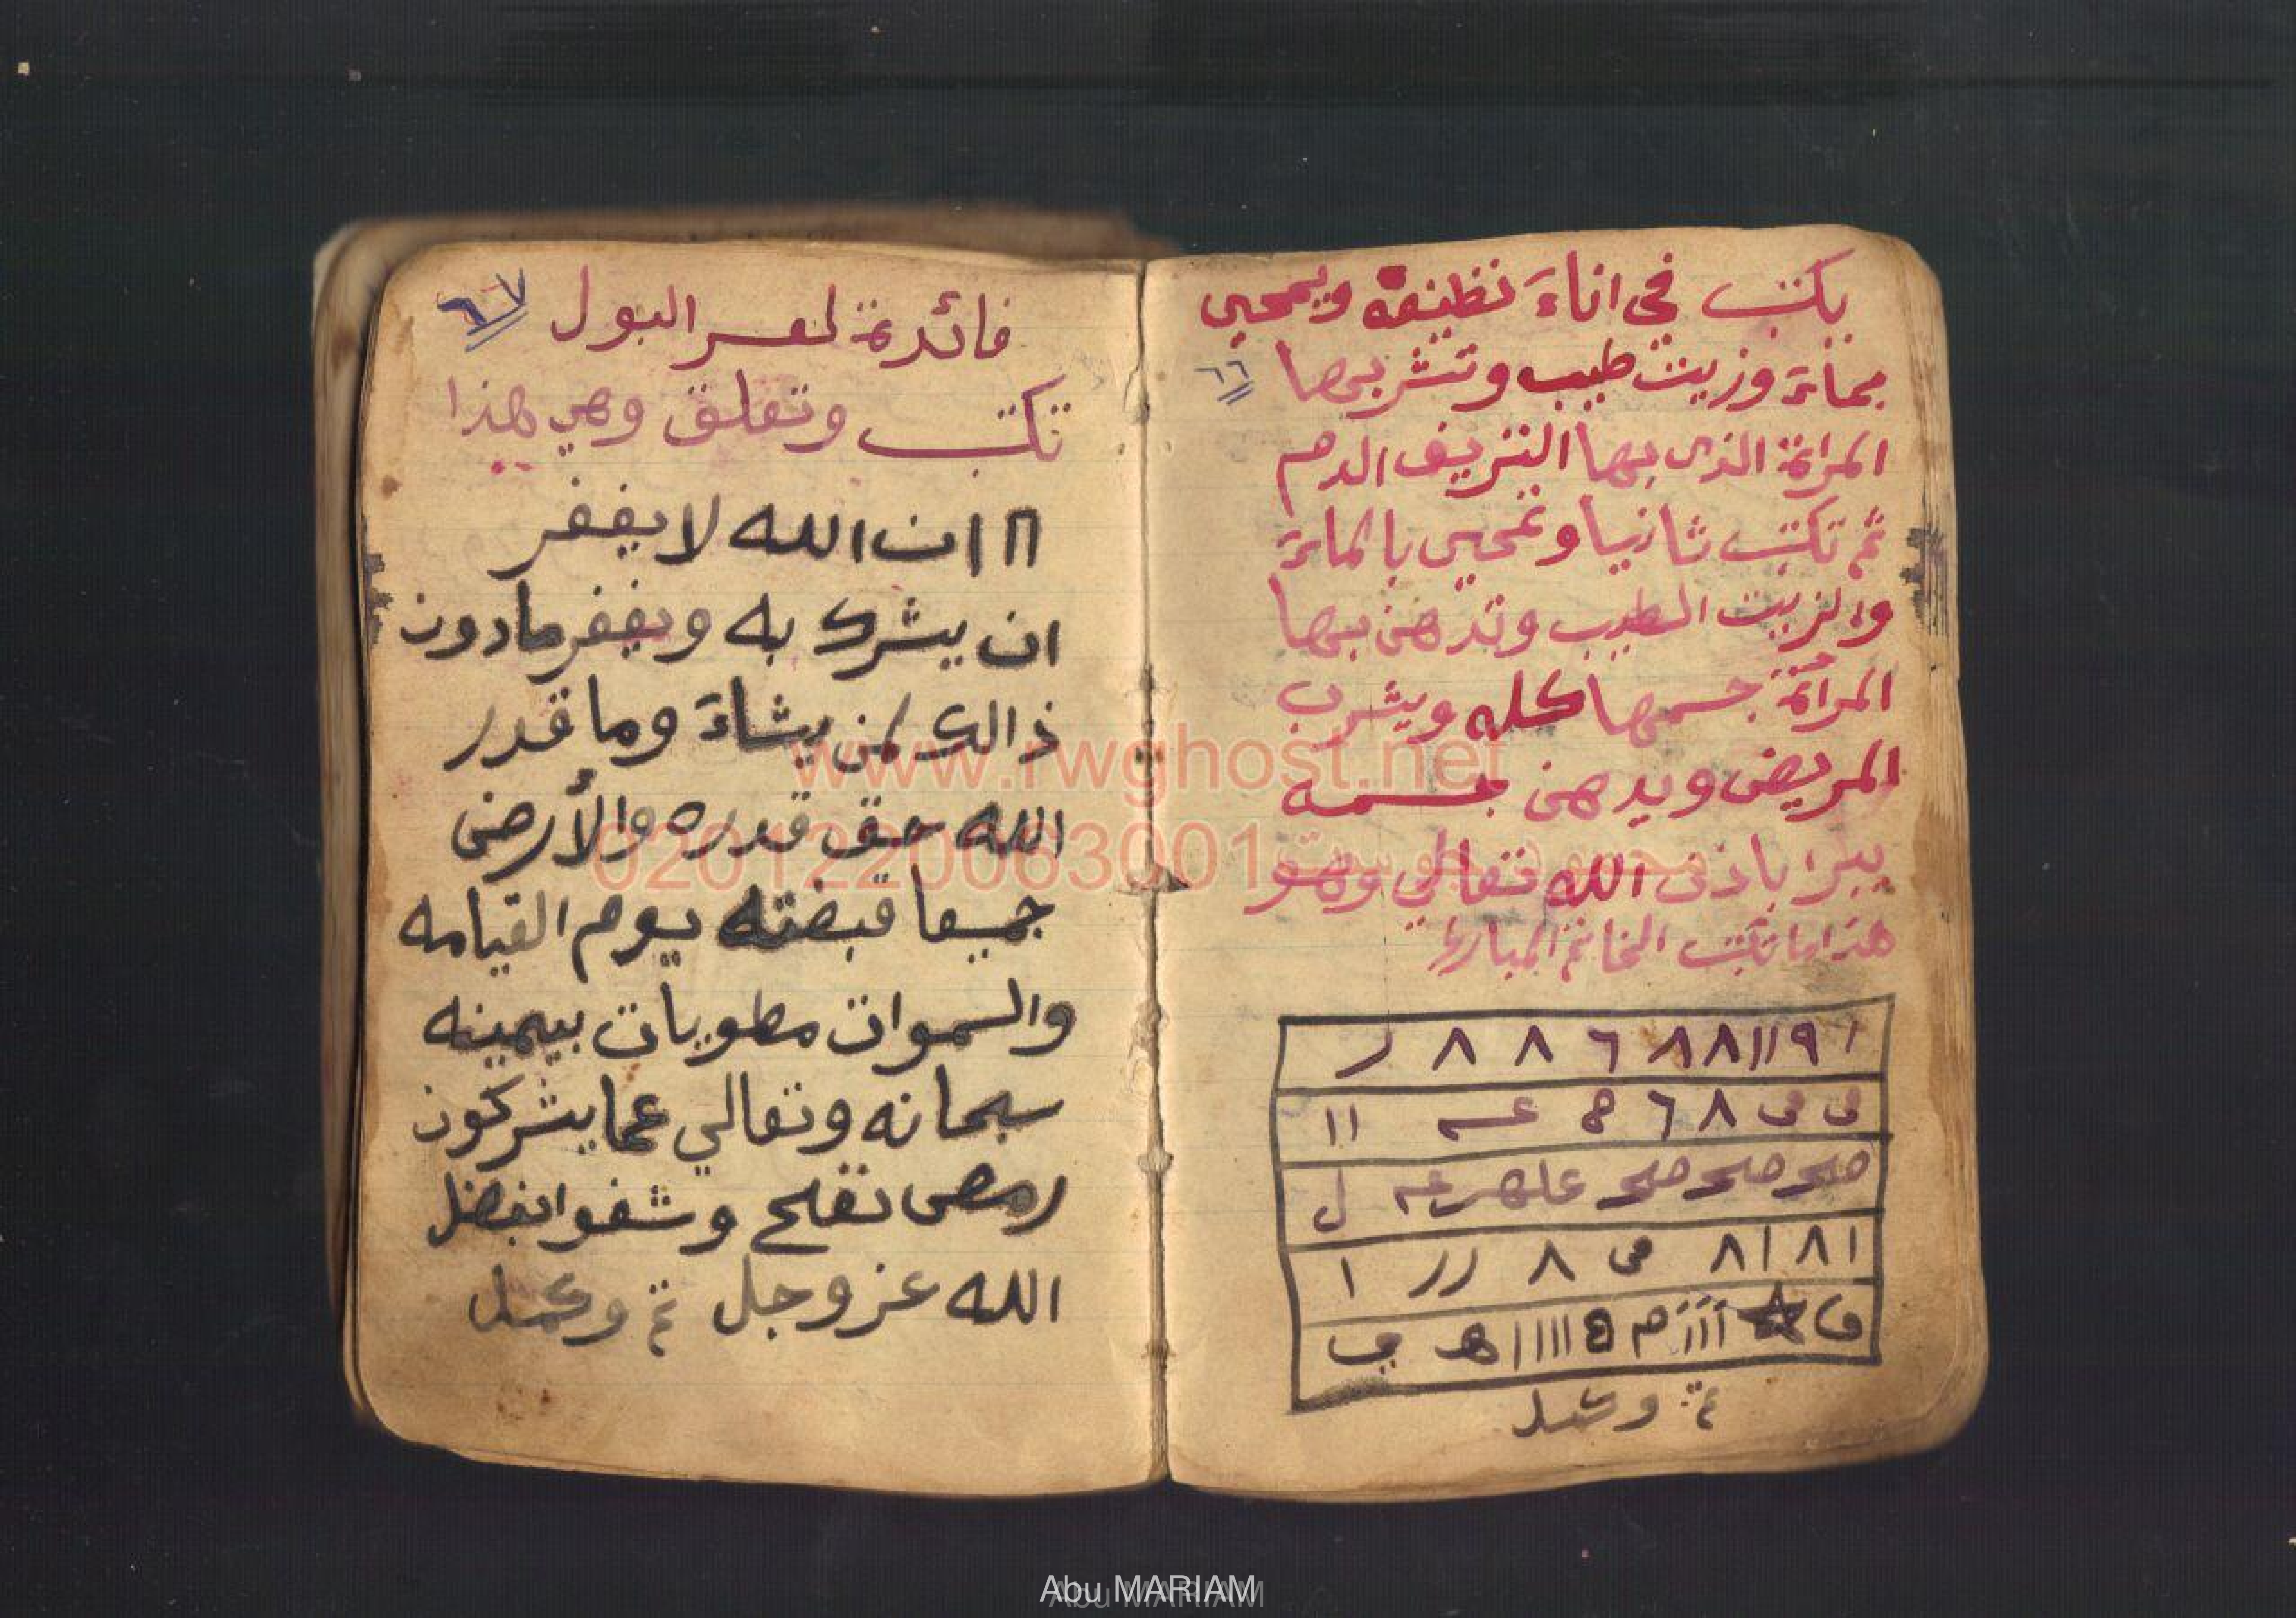 يكتب في اناء نظيفة ويمحى
بماء وزيت طيب وتشربها
٦٦
المراة الذى بها النزيف الدم
ثم تكتب ثانيا وتمحى بالماء
والزيت الطيب وتدهن بها
المراة جسمها كله ويشرب
المريض ويدهن جسمه
يبرا باذن الله تعالي وهو
هذا ما تكتب الخاتم المبارك
١ ٩ ١١ ٨ ٨ ٦ ٨ ٨ ر
٨ ٦ عـه ١١
صح صح صح ل
١ ٨ ١ ٨ ٨ رر ١
تم وكمل
٦٧
فائدة لعسر البول
تكتب وتعلق وهي هذا
ان الله لا يغفر
ان يشرك به ويغفر مادون
ذالك لمن يشاء وما قدر
الله حق قدره والأرض
جميعا قبضته يوم القيامه
والسموات مطويات بيمينه
سبحانه وتعالي عما يشركون
رمص نفلح وشفوا بفضل
الله عز وجل تم وكمل
www.rwghost.net
0201220063001
Abu MARIAM